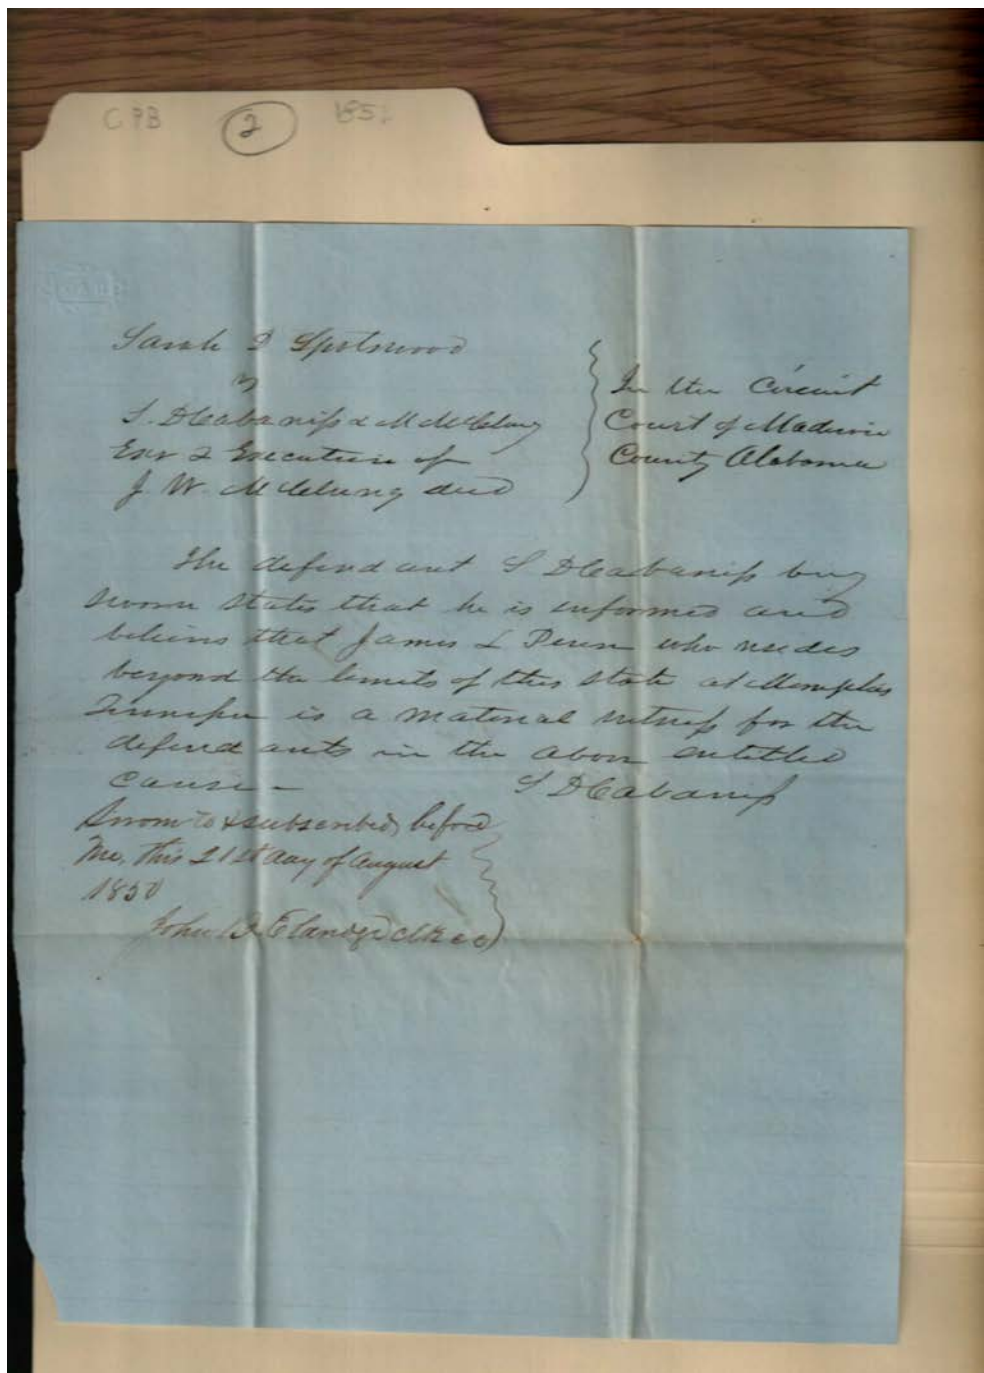 CPB 2 185
Sarah D Spotswood
vs
S. D Cabaniss & M McClung
Exr & Executrix of
J. W. McClung decd
In the Circuit
Court of Madison
County Alabama
The defendant S D Cabaniss being
sworn states that he is informed and
believes that James L Penn who resides
beyond the limits of this State at Memphis
Tennessee is a material witness for the
defendants in the above entitled
cause—
S D Cabaniss
Sworn to & subscribed before
me, this 21st day of August
1850
John